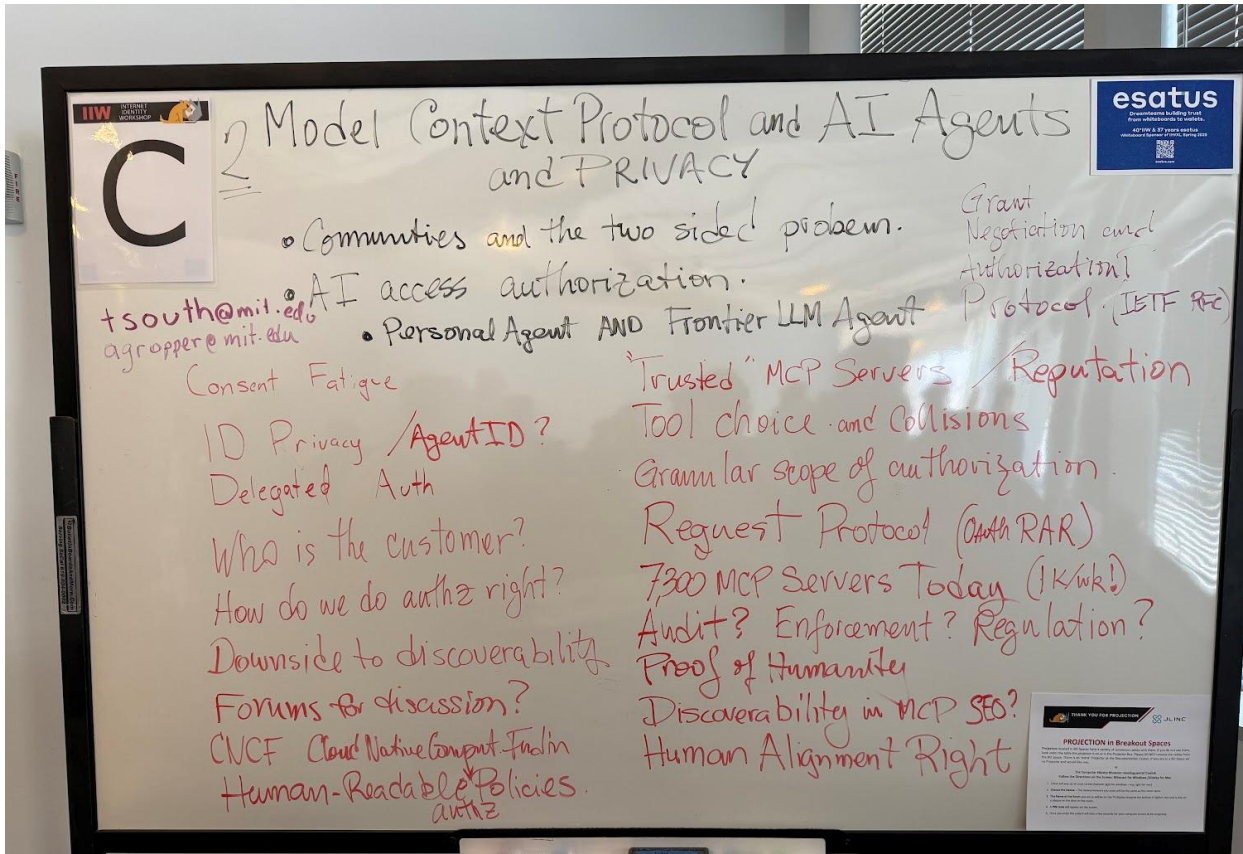 IIW INTERNET IDENTITY WORKSHOP
C
2 Model Context Protocol and AI Agents
and PRIVACY
esatus
Dreamteams building trust
from whiteboards to wallets.
40*IIW & 37 years esatus
Whiteboard Sponsor of IIWXL, Spring 2025
esatus.com
• Communties and the two sided probem.
• AI access authorization.
• Personal Agent AND Frontier LLM Agent
Grant
Negotiation and
Authorization?
Protocol. (IETF RFC)
tsouth@mit.edu
agropper@mit.edu
Consent Fatigue
ID Privacy /AgentID?
Delegated Auth
Who is the customer?
How do we do authz right?
Downside to discoverability
Forums for discussion?
CNCF Cloud Native Comput.
Human-Readable Policies.
authz
"Trusted" MCP Servers /Reputation
Tool choice and Collisions
Granular scope of authorization.
Request Protocol (OAuth RAR)
7,300 MCP Servers Today (1K/wk!)
Audit? Enforcement? Regulation?
Proof of Humanity
Discoverability in MCP SEO?
Human Alignment Right
THANK YOU FOR PROJECTION
JLINC
PROJECTION in Breakout Spaces
FIRE